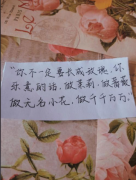 "你不一定要长成玫瑰，你
乐意的话，做茉莉，做蔷薇
做无名小花，做千千万万。